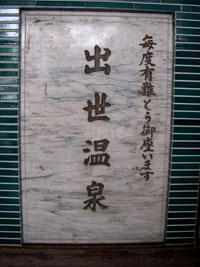 毎度有難とう御座います
出世温泉